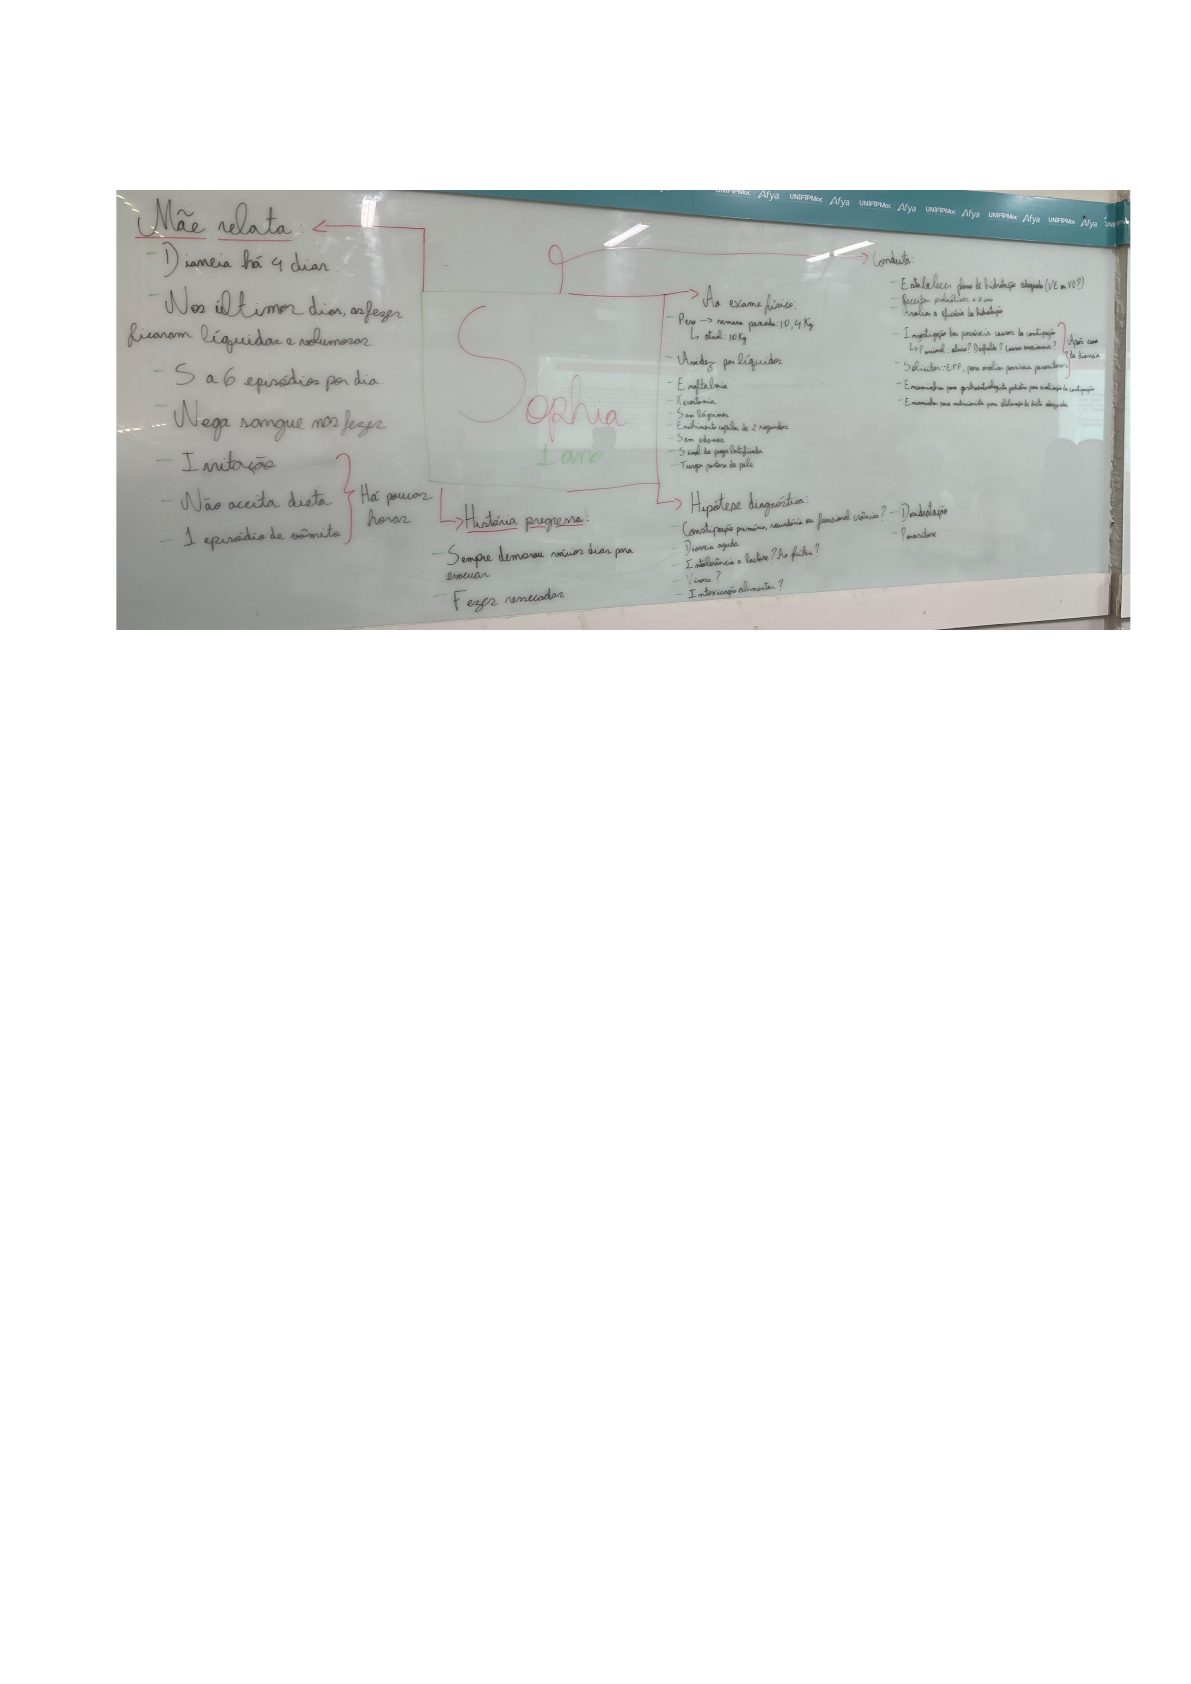 UNIFIPMoc Afya UNIFIPMoc Afya UNIFIPMoc Afya UNIFIPMoc Afya UNIFIPMoc Afya UNIFIPMoc Afya
Mãe relata:
- Diarreia há 4 dias.
- Nos últimos dias, as fezes
ficaram líquidas e volumosas.
- 5 a 6 episódios por dia.
- Nega sangue nas fezes
- Irritação
- Não aceita dieta
- 1 episódio de vômito
Há poucas
horas
Sophia
1 ano
História pregressa:
- Sempre demorou vários dias para
evacuar
- Fezes ressecadas
Ao exame físico:
- Peso → semana passada: 10,4 Kg
↳ atual: 10 Kg
- Avidez por líquidos
- Enoftalmia
- Xerostomia
- Sem lágrimas
- Enchimento capilar de 2 segundos
- Sem edemas
- Sinal da prega
- Turgor pastoso da pele
Hipótese diagnóstica:
- Constipação primária, secundária ou funcional crônica?
- Diarreia aguda
- Intolerância a lactose? Ao glúten?
- Virose?
- Intoxicação alimentar?
- Desidratação
- Parasitose
Conduta:
- Estabelecer plano de hidratação adequado (VE ou VO?)
- Receitar
- Analisar a eficácia da hidratação
- Investigação das possíveis causas da constipação
↳ Funcional: abuso? Desfralde? Causas emocionais?
- Solicitar: EPF, para analisar possíveis parasitoses
Após
da diarreia
- Encaminhar para gastroenterologista pediátrico para avaliação da constipação
- Encaminhar para nutricionista para elaboração de dieta adequada